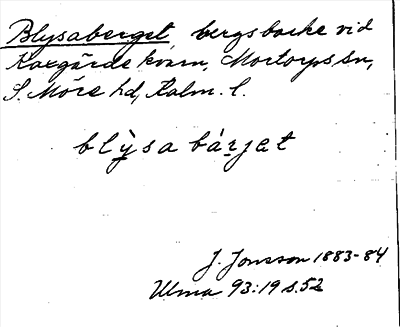 Blysaberget, bergsbacke vid
Kaxgärde kvarn, Mortorps sn,
S. Möre hd, Kalm. l.
blỳsa bárjet
J. Jonsson 1883-84
Ulma 93:19 s. 52